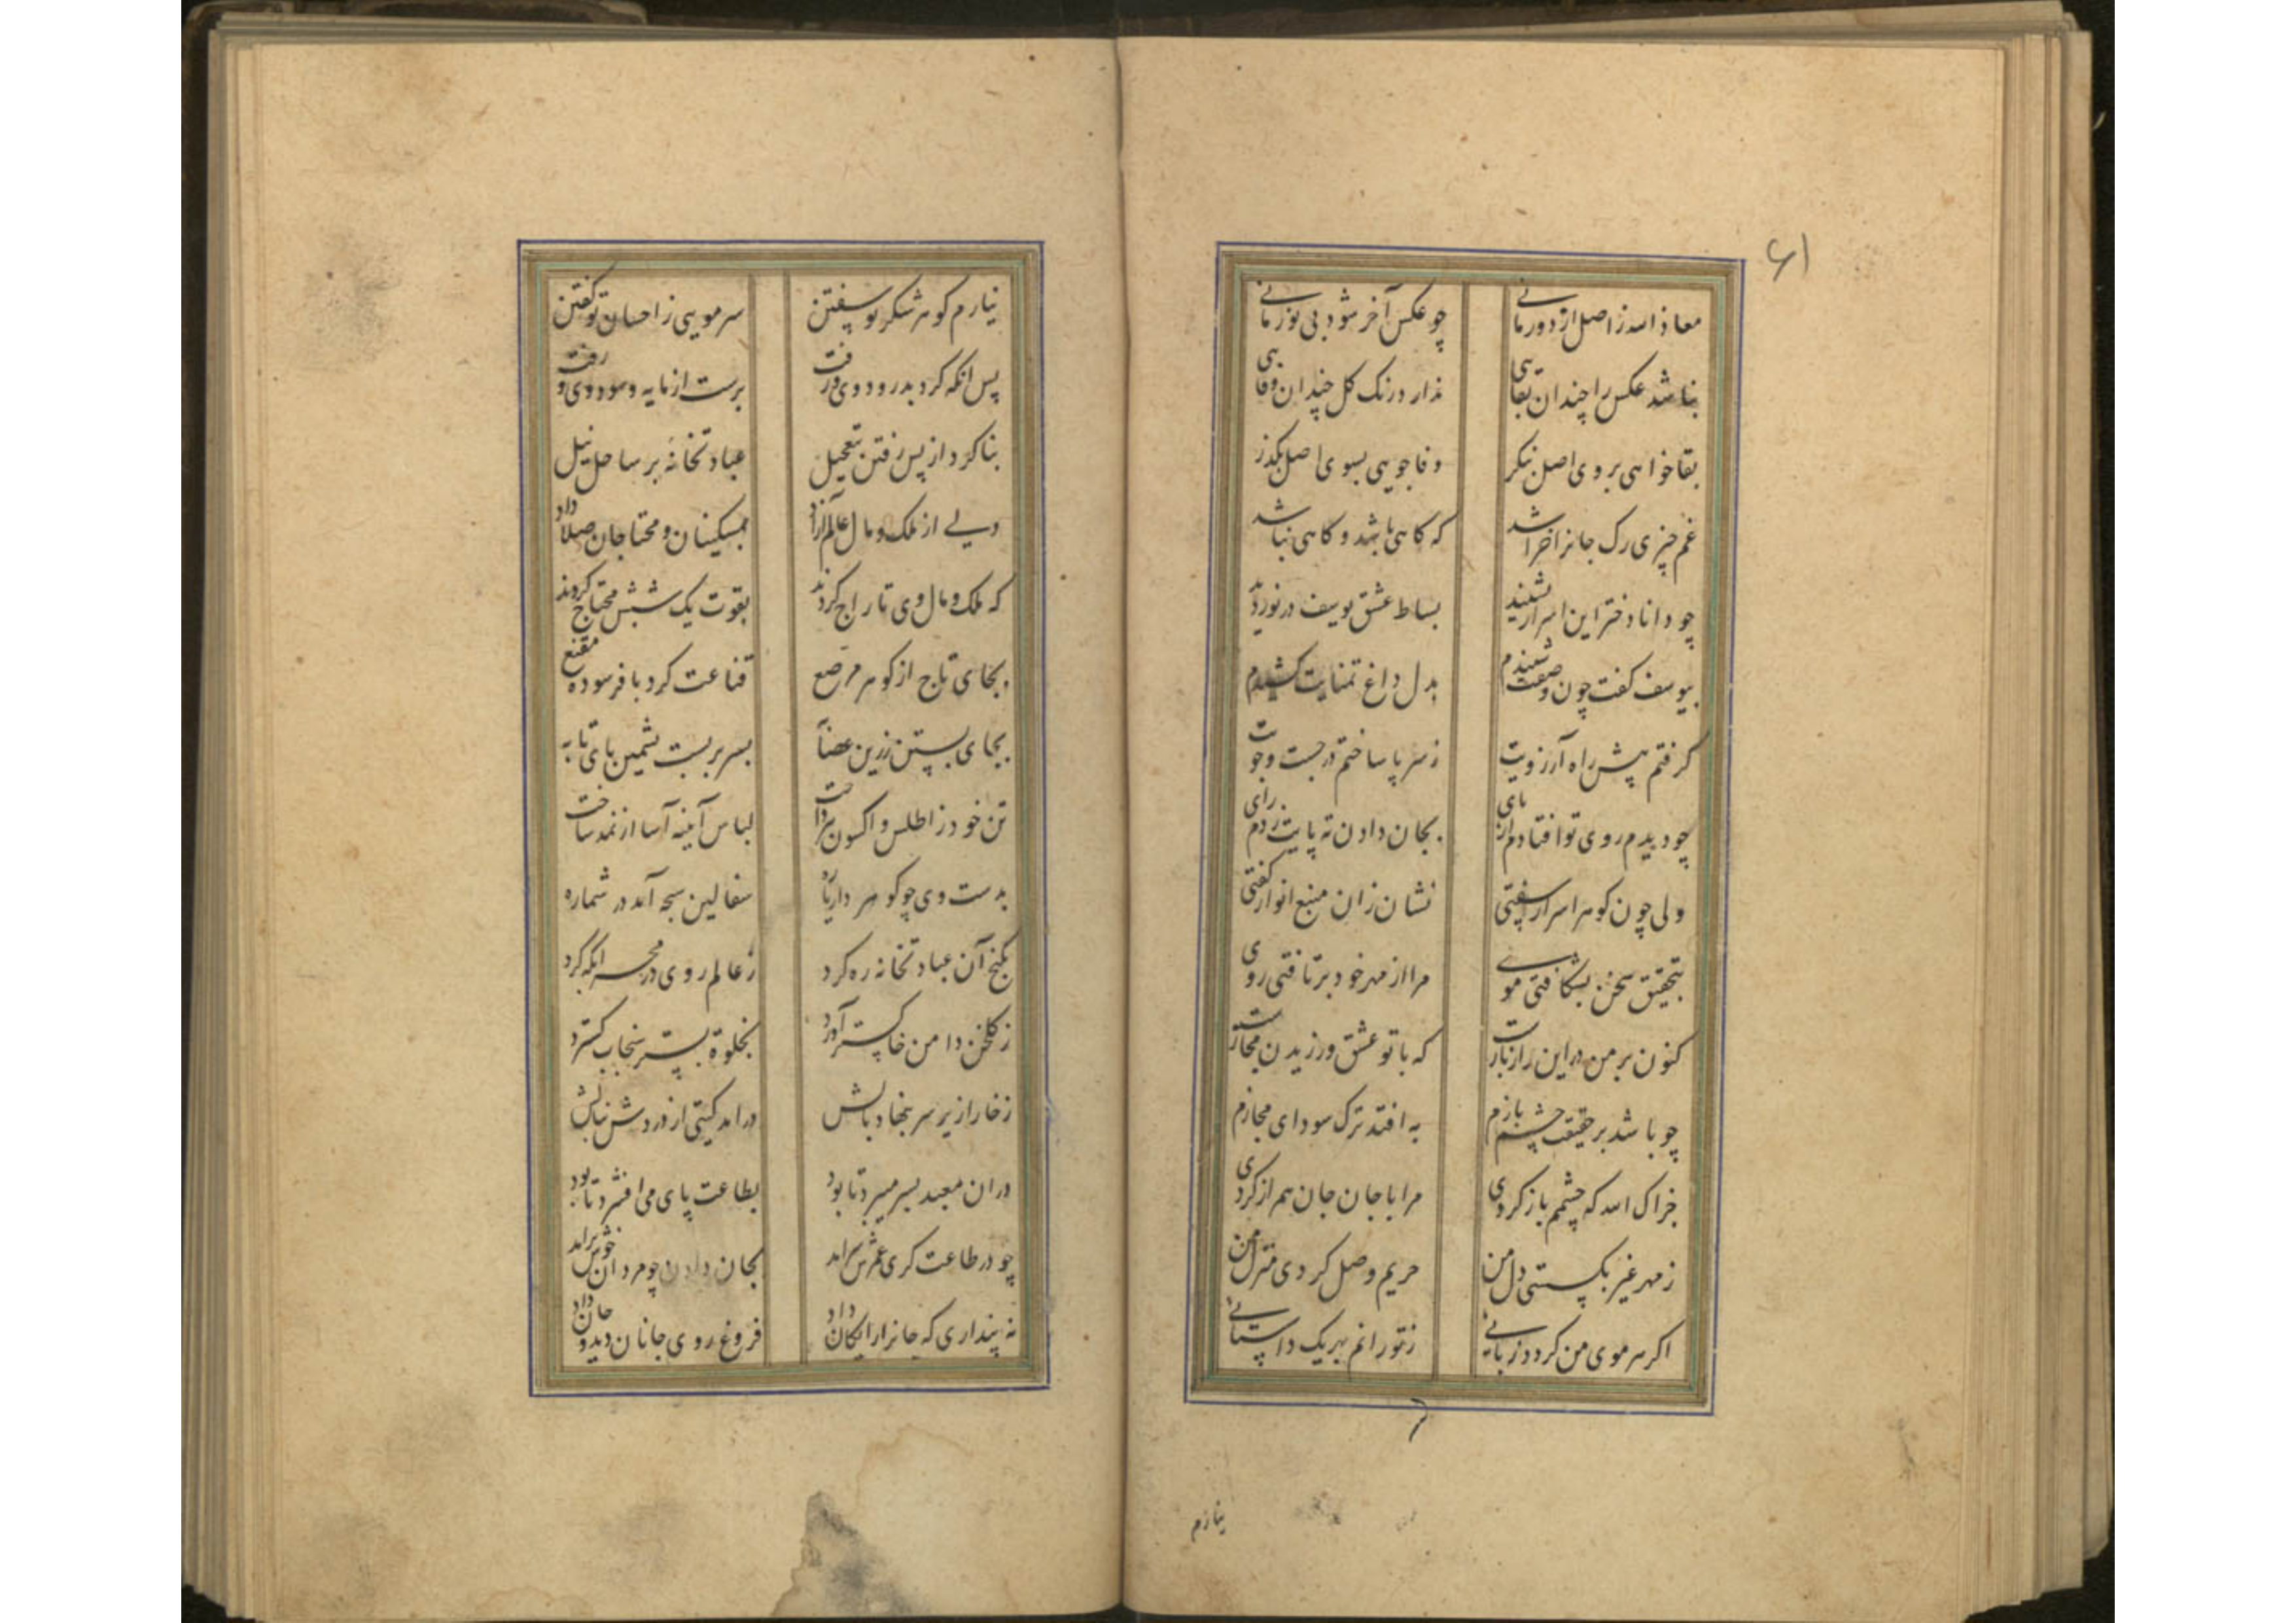 ۶۱
معاذ الله ز اصل ار دور مانی چو عکس آخر شود بی نور مانی
نباشد عکس را چندان بقایی ندارد رنگ گل چندان وفایی
بقا خواهی بروی اصل بنگر وفا جویی بسوی اصل بگذر
غم چیزی رگ جانرا خراشد که گاهی باشد و گاهی نباشد
چو دانا دختر این اسرار بشنید بساط عشق یوسف در نوردید
بیوسف گفت چون وصفت شنیدم بدل داغ تمنایت کشیدم
گرفتم پیش راه آرزویت ز سر پا ساختم در جست و جویت
چو دیدم روی تو افتادم از پای بجان دادن ته پایت زدم رای
ولی چون گوهر اسرار سفتی نشان زان منبع انوار گفتی
بتحقیق سخن بشکافتی موی مرا از مهر خود برتافتی روی
کنون بر من در این راز بازست که با تو عشق ورزیدن مجازست
چو باشد بر حقیقت چشم بازم به افتد ترک سودای مجازم
جزاک الله که چشمم باز کردی مرا با جان جان همراز کردی
ز مهر غیر بگسستی دل من حریم وصل کردی منزل من
اگر هر موی من گردد زبانی ز تو رانم بهر یک داستانی
نیارم
نیارم گوهر شکر تو سفتن سر مویی ز احسان تو گفتن
پس انگه کرد بدرود وی و رفت برست از مایه و سود وی و رفت
بنا کرد از پس رفتن بتعجیل عبادتخانه بر ساحل نیل
ولی از ملک و مال عالم آزاد بمسکینان و محتاجان صلا داد
که ملک و مال وی تاراج کردند بقوت یک شبش محتاج کردند
بجای تاج از گوهر مرصع قناعت کرد با فرسوده مقنع
بجای بستن زرین عصابه بسر بر بست پشمین پای تابه
تن خود ز اطلس و اکسون بپرداخت لباس آینه آسا از نمد ساخت
بدست وی چو گوهر دار یاره سفالین سبحه آمد در شماره
بکنج آن عبادتخانه ره کرد ز عالم روی در محراب انگه کرد
ز گلخن دامن خاکستر آورد بخلوة بستر سنجاب گسترد
ز خارا زیر سر بنهاد بالش درامد گیتی از دردش بنالش
دران معبد بسر میبرد تا بود بطاعت پای می افشرد تا بود
چو در طاعت گری عمرش سرامد بجان دادن چو مردان خوش برامد
نه پنداری که جانرا رایگان داد فروغ روی جانان دید و جان داد